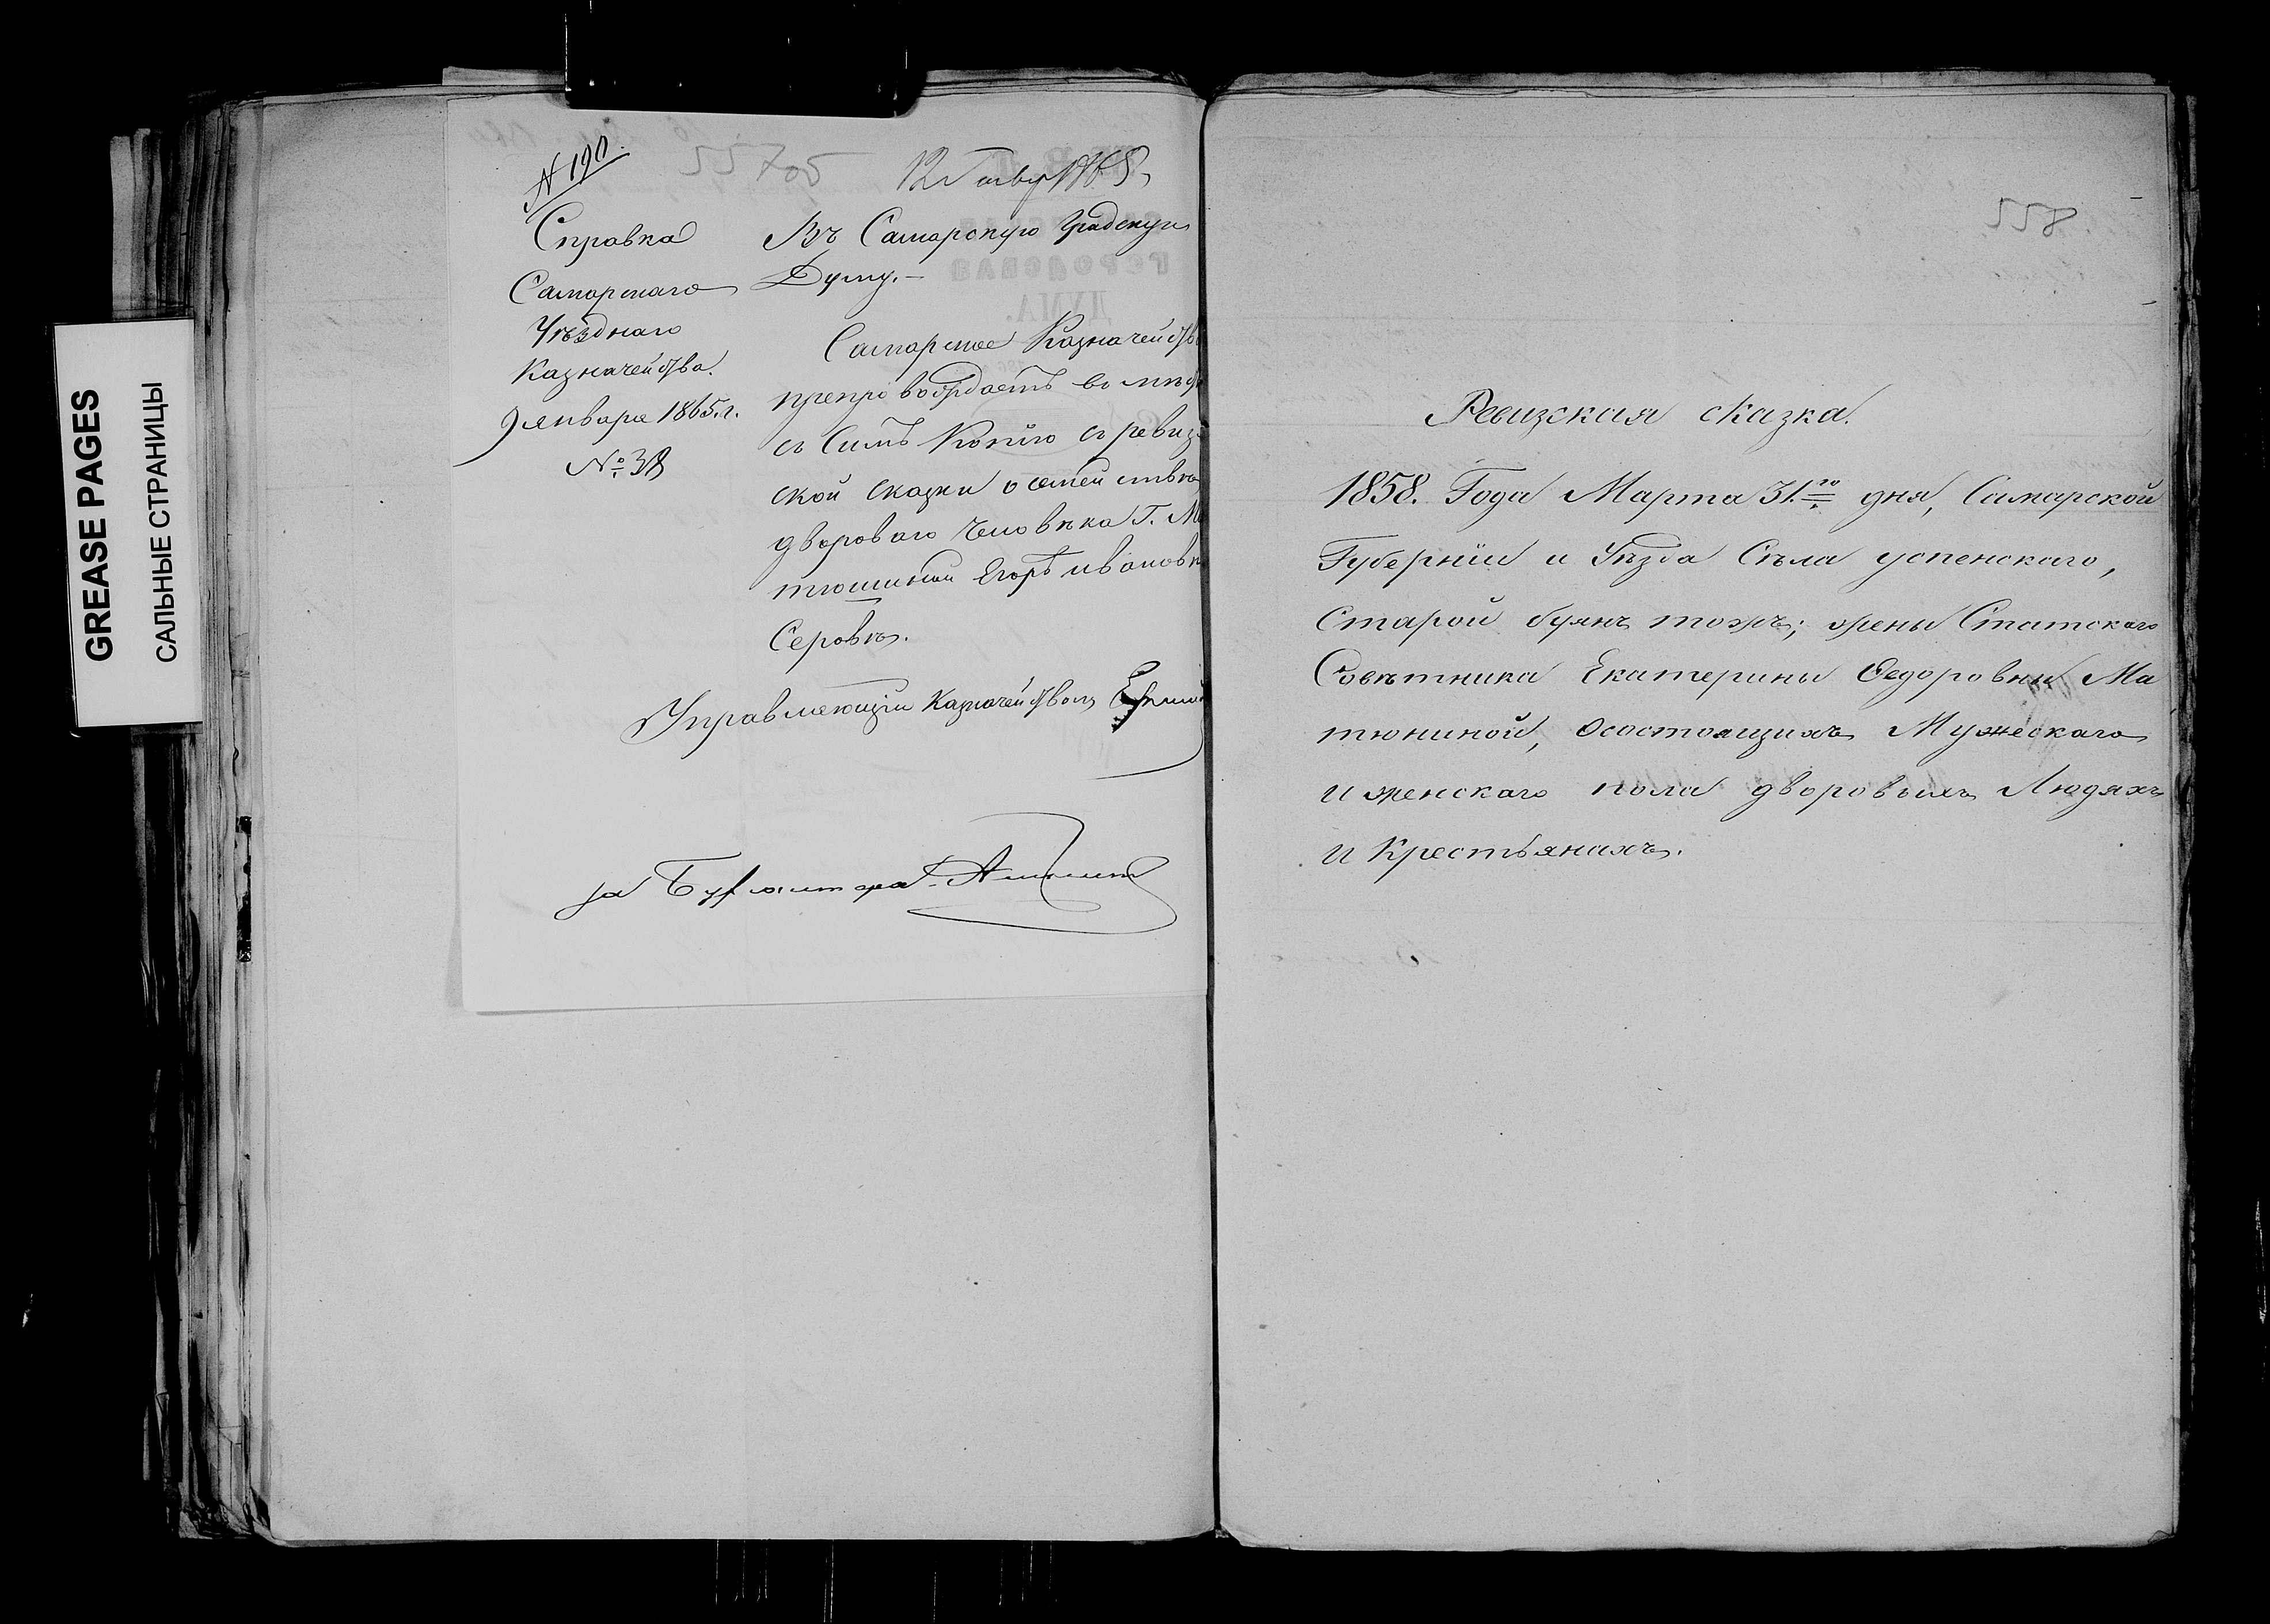 GREASE PAGES
САЛЬНЫЕ СТРАНИЦЫ
N 190.
12 Генвр 1865
Справка
Самарскаго
Уѣзднаго
Казначейства.
9 января 1865.г.
№ 38
Въ Самарскую Градскую
Думу.-
Самарское Казначейств
препровождаетъ въ мѣс
съ Симъ Копію съ ревиз
ской сказки о семействѣ
двороваго человѣка Г. Ма
тюшиной Егорѣ Ивановѣ
Серовѣ.
Управляющій Казначействомъ
за Бухгалтера
558.
Ревизская сказка.
1858. Года Марта 31.го дня, Самарской
Губерніи и Уѣзда Съла успенскаго,
Старой буянъ тожъ; жены Статскаго
Совѣтника Екатерины Федоровны Ма
тюниной, осостоящихъ Мужескаго
и женскаго пола дворовыхъ Людяхъ
и Крестьянахъ.